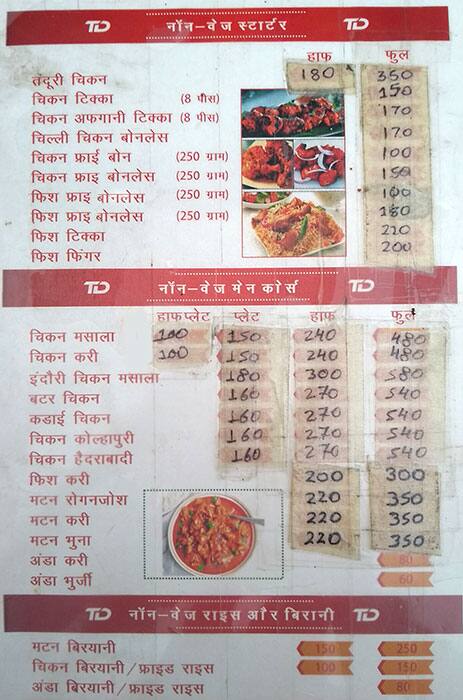 TD नॉन-वेज स्टार्टर TD
हाफ फुल
तंदूरी चिकन 180 350
चिकन टिक्का (8 पीस) 150
चिकन अफगानी टिक्का (8 पीस) 170
चिल्ली चिकन बोनलेस 170
चिकन फ्राई बोन (250 ग्राम) 100
चिकन फ्राई बोनलेस (250 ग्राम) 150
फिश फ्राई बोनलेस (250 ग्राम) 100
फिश फ्राई बोनलेस (250 ग्राम)
फिश टिक्का 220
फिश फिंगर 200
TD नॉन-वेज मेन कोर्स TD
हाफ प्लेट प्लेट हाफ फुल
चिकन मसाला 100 150 240 480
चिकन करी 100 150 240 480
इंदौरी चिकन मसाला 180 300 580
बटर चिकन 160 270 540
कडाई चिकन 160 270 540
चिकन कोल्हापुरी 160 270 540
चिकन हैदराबादी 160 270 540
फिश करी 200 300
मटन रोगनजोश 220 350
मटन करी 220 350
मटन भुना 220 350
अंडा करी 80
अंडा भुर्जी 60
TD नॉन-वेज राइस और बिरानी TD
मटन बिरयानी 150 250
चिकन बिरयानी/फ्राइड राइस 100 150
अंडा बिरयानी/फ्राइड राइस 80